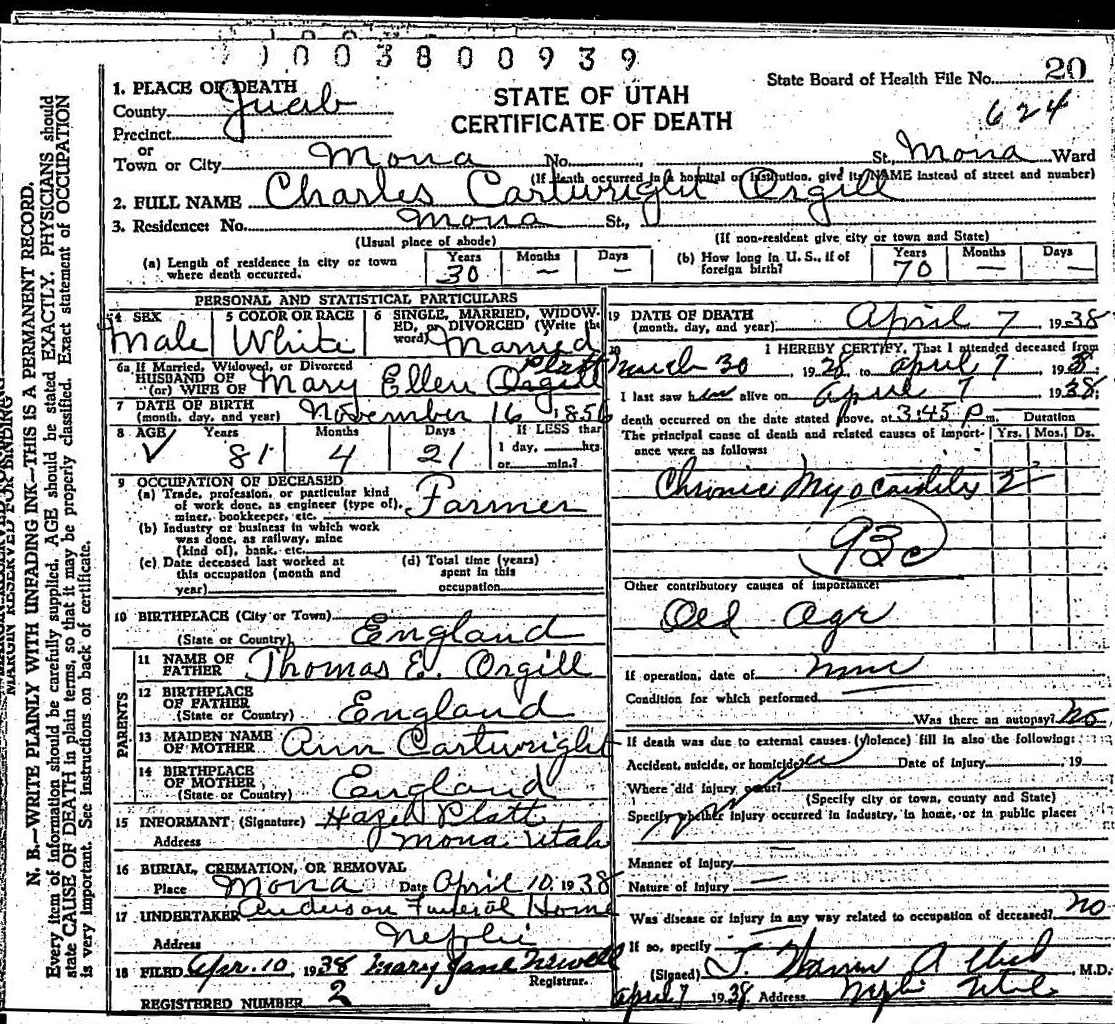 1003800939
State Board of Health File No. 20
624
STATE OF UTAH
CERTIFICATE OF DEATH
1. PLACE OF DEATH
County Juab
Precinct
or
Town or City Mona No. St., Mona Ward
(If death occurred in a hospital or institution, give its NAME instead of street and number)
2. FULL NAME Charles Cartwright Orgill
3. Residence: No. Mona St.,
(Usual place of abode) (If non-resident give city or town and State)
(a) Length of residence in city or town where death occurred. Years 30 Months — Days —
(b) How long in U. S., if of foreign birth? Years 70 Months — Days —
PERSONAL AND STATISTICAL PARTICULARS
4 SEX Male
5 COLOR OR RACE White
6 SINGLE, MARRIED, WIDOWED, or DIVORCED (Write the word) Married
6a If Married, Widowed, or Divorced
HUSBAND OF
(or) WIFE OF Mary Ellen Platt Orgill
7 DATE OF BIRTH
(month, day, and year) November 16 1856
8 AGE Years 81 Months 4 Days 21 If LESS than 1 day, hrs. or min.?
9 OCCUPATION OF DECEASED
(a) Trade, profession, or particular kind of work done, as engineer (type of), miner, bookkeeper, etc. Farmer
(b) Industry or business in which work was done, as railway, mine (kind of), bank, etc.
(c) Date deceased last worked at this occupation (month and year)
(d) Total time (years) spent in this occupation
10 BIRTHPLACE (City or Town)
(State or Country) England
PARENTS
11 NAME OF FATHER Thomas E. Orgill
12 BIRTHPLACE OF FATHER
(State or Country) England
13 MAIDEN NAME OF MOTHER Ann Cartwright
14 BIRTHPLACE OF MOTHER
(State or Country) England
15 INFORMANT (Signature) Hazel Platt
Address Mona, Utah
16 BURIAL, CREMATION, OR REMOVAL
Place Mona Date April 10, 1938
17 UNDERTAKER Anderson Funeral Home
Address Nephi
18 FILED Apr. 10, 1938 Mary Jane Newell
Registrar.
REGISTERED NUMBER 2
19 DATE OF DEATH
(month, day, and year) April 7 1938
20 I HEREBY CERTIFY, That I attended deceased from
March 30 1928 to April 7 1938.
I last saw him alive on April 7 1938;
death occurred on the date stated above, at 3:45 P m.
The principal cause of death and related causes of importance were as follows: Duration Yrs. Mos. Ds.
Chronic Myocarditis 2
93c
Other contributory causes of importance:
Old Age
If operation, date of none
Condition for which performed
Was there an autopsy? No
If death was due to external causes (violence) fill in also the following:
Accident, suicide, or homicide? Date of injury 19
Where did injury occur?
(Specify city or town, county and State)
Specify whether injury occurred in industry, in home, or in public place:
Manner of Injury
Nature of Injury
Was disease or injury in any way related to occupation of deceased? No
If so, specify
(Signed) M.D.
April 7 1938 Address Nephi Utah
MARGIN RESERVED FOR BINDING
N. B.—WRITE PLAINLY WITH UNFADING INK—THIS IS A PERMANENT RECORD.
Every item of information should be carefully supplied. AGE should be stated EXACTLY. PHYSICIANS should
state CAUSE OF DEATH in plain terms, so that it may be properly classified. Exact statement of OCCUPATION
is very important. See instructions on back of certificate.